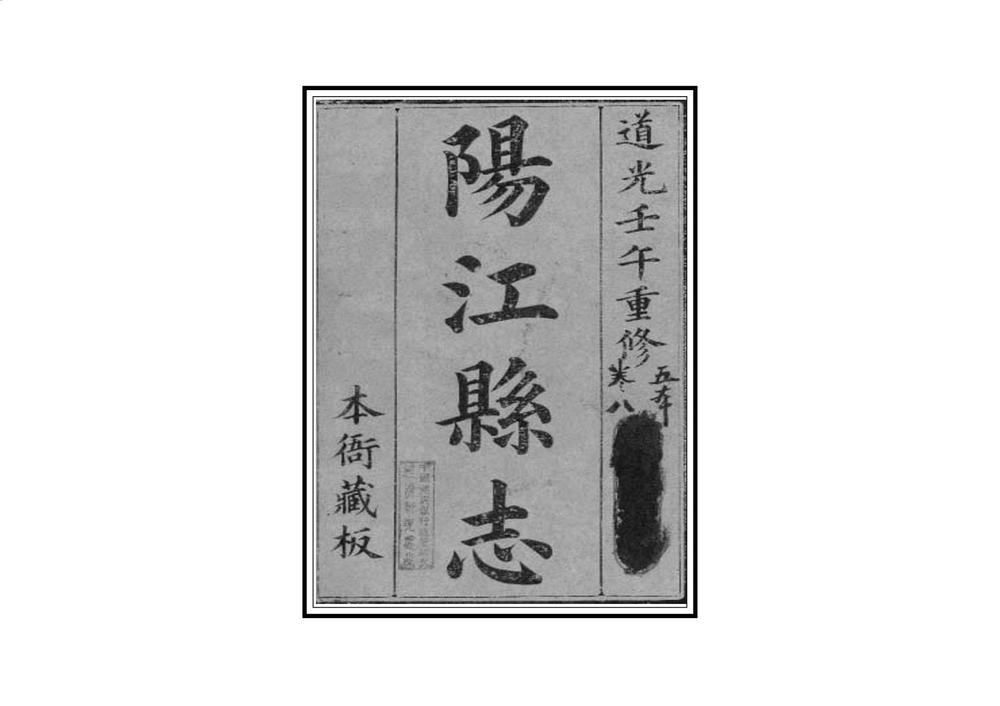 道光壬午重修
五本
卷八
陽江縣志
本衙藏板